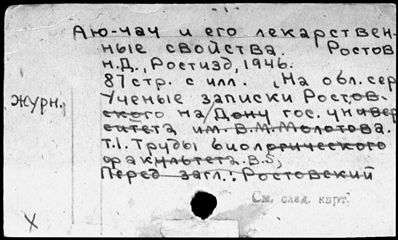 Аю-чач и его лекарствен-
ные свойства. Ростов
н.Д., Ростизд, 1946.
87 стр. с илл. На обл. сер.
журн. Ученые записки Ростов-
ского на/Дону гос. универ
ситета им. В.М.Молотова.
т.I. Труды биологического
факультета. В.5,
Перед загл.: Ростовский
См. след. карт.